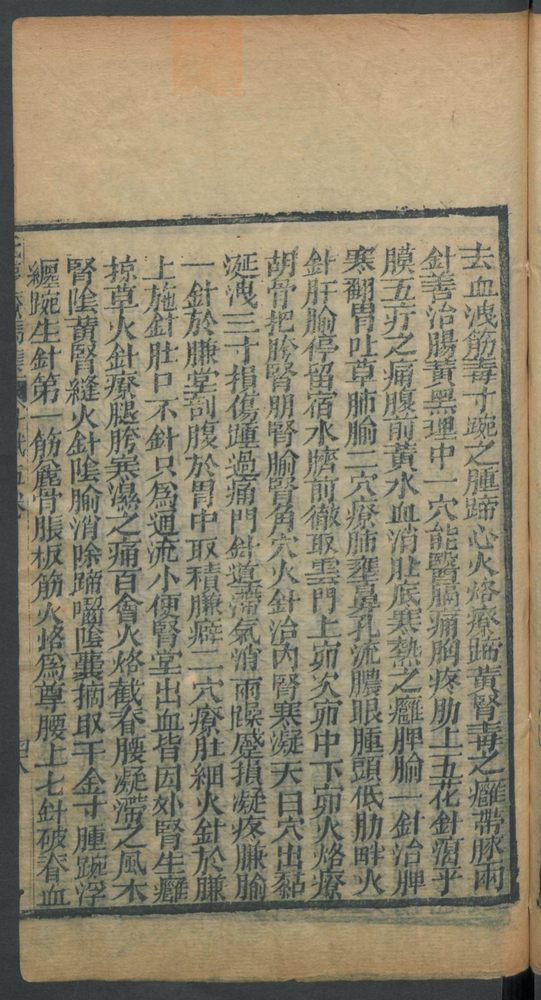 去血洩筋毒寸踠之腫蹄心火烙療蹄黃腎毒之癰帶脉兩
針善治腸黃黑理中一穴能醫膈痛胸疼肋上五花針瀉乎
膜五疔之痛腹前黃水血消肚底寒熱之癰脾腧一針治脾
寒翻胃吐草肺腧二穴療肺壅鼻孔流膿眼腫頭低肋畔火
針肝腧停留宿水臍前徹取雲門上卯次卯中下卯火烙療
胡骨把胯腎朋腎腧腎角穴火針治內腎寒凝天臼穴出黏
涎洩三寸損傷踵過痛門針道滯氣消兩臁盛損凝疼臁腧
一針於臁堂剖腹於胃中取積臁癖二穴療肚細火針於臁
上施針肚口不針只為通流小便腎堂出血皆因外腎生癰
掠草火針療腿胯寒濕之痛百會火烙截脊腰凝滯之風本
腎陰黃腎縫火針陰腧消除蹄囓陰囊摘取千金寸腫踠浮
纏踠生針第一筋麄骨脹板筋火烙為尊腰上七針破脊血
四八